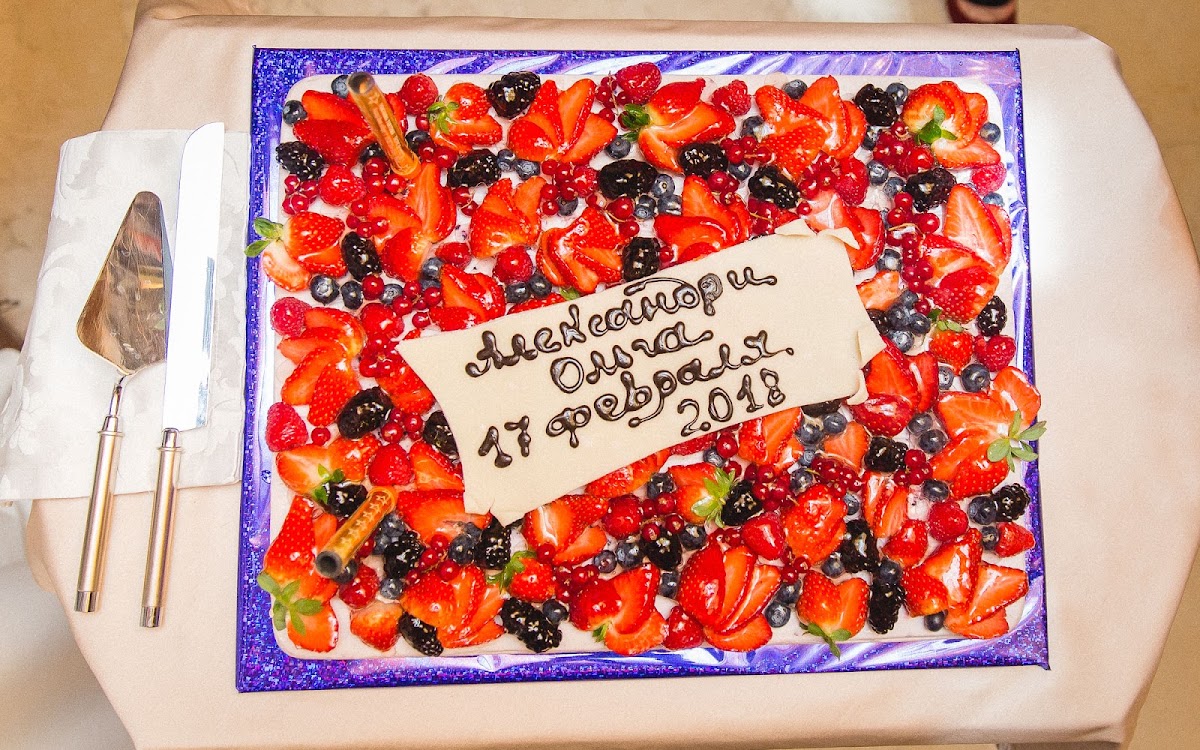 Александр и
Ольга
17 февраля
2018